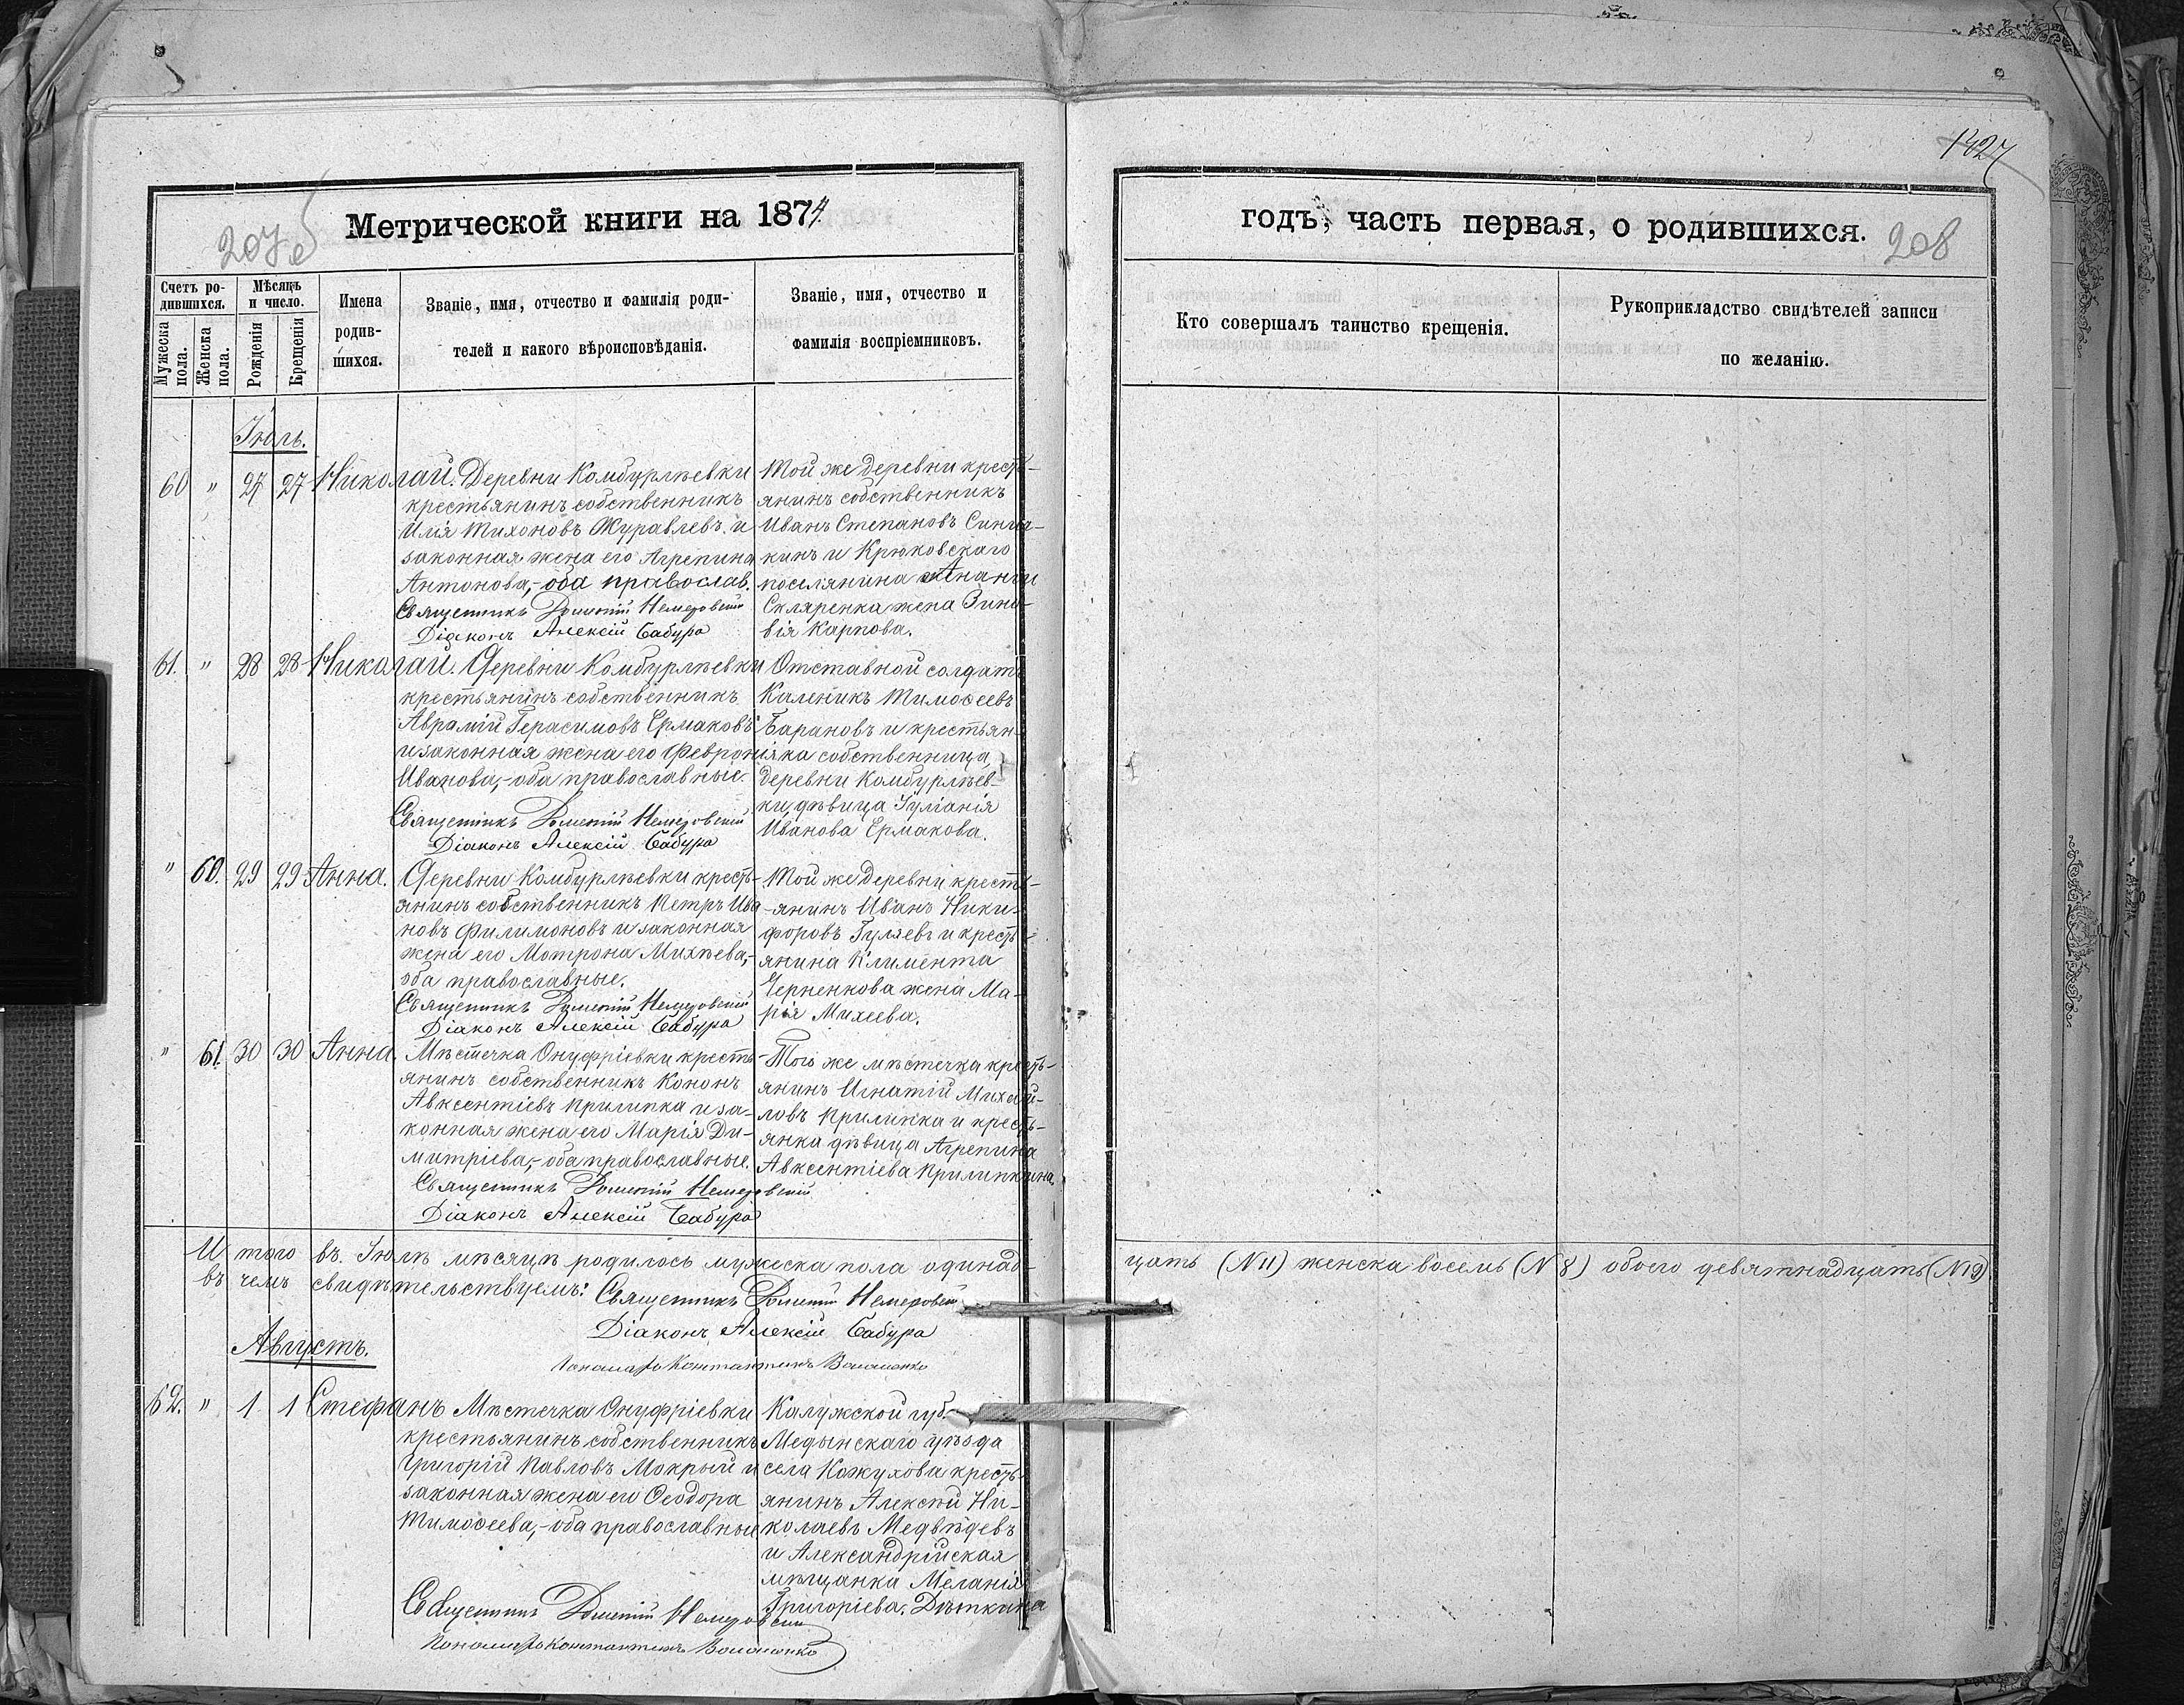 1427
Метрической книги на 1874.
207 об
годъ, часть первая, о родившихся.
208
Счетъ ро-
дившихся.
Мужеска
пола.
Женска
пола.
Мѣсяцъ
и число.
Рожденія
Крещенія
Имена
родив-
шихся.
Званіе, имя, отчество и фамилія роди-
телей и какого вѣроисповѣданія.
Званіе, имя, отчество и
фамилія воспріемниковъ.
Кто совершалъ таинство крещенія.
Рукоприкладство свидѣтелей записи
по желанію.
Іюль.
60 " 27 27 Николай.
Деревни Комбурлѣевки
крестьянинъ собственникъ
Илія Тихоновъ Журавлевъ и
законная жена его Агрепина
Антонова,- оба православ.
Священникъ Немеровскій
Діаконъ Алексій Бабура
Той же деревни кресть-
янинъ собственникъ
Иванъ Степановъ
кинъ и Крюковскаго
поселянина Ананіи
Скляренка жена Зино-
вія Карпова.
61. " 28 28 Николай.
Деревни Комбурлѣевки
крестьянинъ собственникъ
Аврамій Герасимовъ Ермаковъ
и законная жена его Февронія
Иванова,- оба православные.
Священникъ Немеровскій
Діаконъ Алексій Бабура
Отставной солдатъ
Каленикъ Тимоѳеевъ
Барановъ и крестьян-
ка собственница,
деревни Комбурлѣев-
ки, дѣвица Іуліанія
Иванова Ермакова.
" 60. 29 29 Анна.
Деревни Комбурлѣевки кресть-
янинъ собственникъ Петръ Ива-
новъ Филимоновъ и законная
жена его Мотрона Михѣева,-
оба православные.
Священникъ Немеровскій
Діаконъ Алексій Бабура
Той же деревни кресть-
янинъ Иванъ Ники-
форовъ Гуляевъ и кресть-
янина Климента
Черненкова жена Ма-
рія Михеева.
" 61. 30 30 Анна.
Мѣстечка Онуфріевки кресть-
янинъ собственникъ Кононъ
Авксентіевъ Прилипка и за-
конная жена его Марія Ди-
митріева,- оба православные.
Священникъ Немеровскій
Діаконъ Алексій Бабура
Того же мѣстечка кресть-
янинъ Игнатій Михай-
ловъ Прилипка и кресть-
янка дѣвица Агрепина
Авксентіева Прилипкина.
И того въ Іюлѣ мѣсяцѣ родилось мужеска пола одинад-
цать (N 11) женска восемь (N 8) обоего девятнадцать (N 19).
въ чемъ свидѣтельствуемъ: Священникъ Немеровскій
Діаконъ Алексій Бабура
Пономарь Константинъ
Августъ.
62. " 1 1 Стефанъ
Мѣстечка Онуфріевки
крестьянинъ собственникъ
Григорій Павловъ Мокрый и
законная жена его Ѳеодора
Тимоѳеева,- оба православные
Священникъ Немеровскій
Пономарь Константинъ
Калужской губ.
Медынскаго уѣзда
села Кожухова кресть-
янинъ Алексѣй Ни-
колаевъ Медвѣдевъ
и Александрійская
мѣщанка Меланія
Григоріева Дѣткина